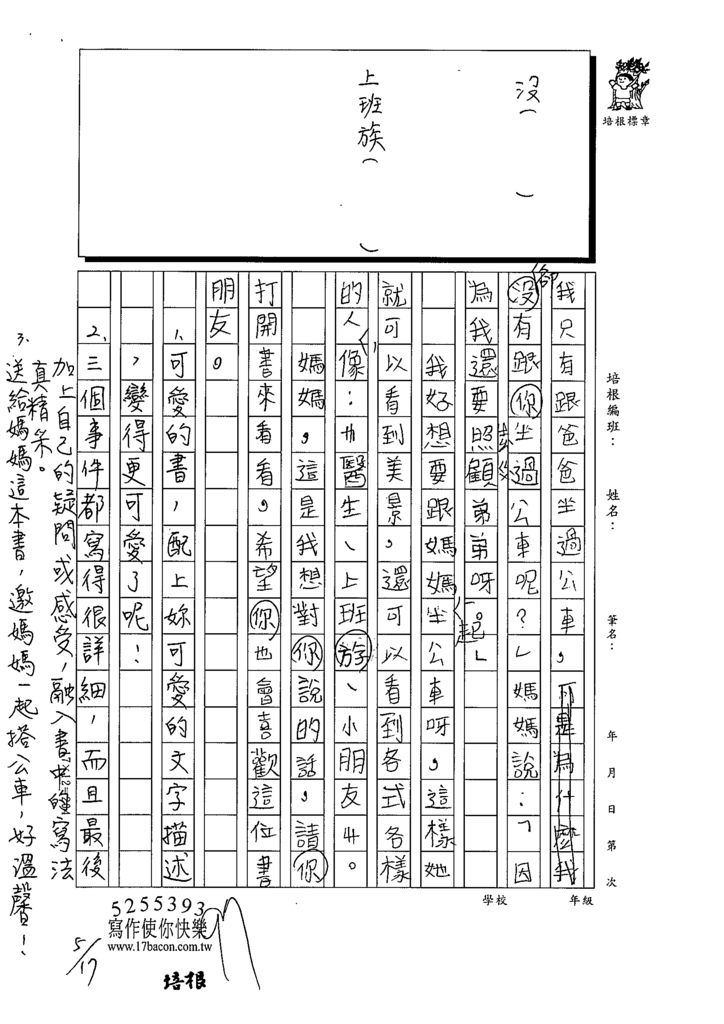 沒（　　）
上班族（　　）
培根標章
我只有跟爸爸坐過公車，可是為什麼我
卻
沒有跟你坐過公車呢？」媽媽說：「因
為我還要照顧弟弟呀。」
我好想要跟媽媽坐公車呀，這樣她
一起
就可以看到美景，還可以看到各式各樣
的人，像：醫生、上班族、小朋友⋯⋯。
媽媽，這是我想對你說的話，請你
打開書來看看，希望你也會喜歡這位書
朋友。
1、可愛的書，配上妳可愛的文字描述
，變得更可愛了呢！
2、三個事件都寫得很詳細，而且最後
加上自己的疑問或感受，融入書中的寫法
真精采。
3、送給媽媽這本書，邀媽媽一起搭公車，好溫馨！
培根編班：　姓名：　筆名：　年　月　日　第　次
學校　年級
5255393
寫作使你快樂
www.17bacon.com.tw
培根
5/17